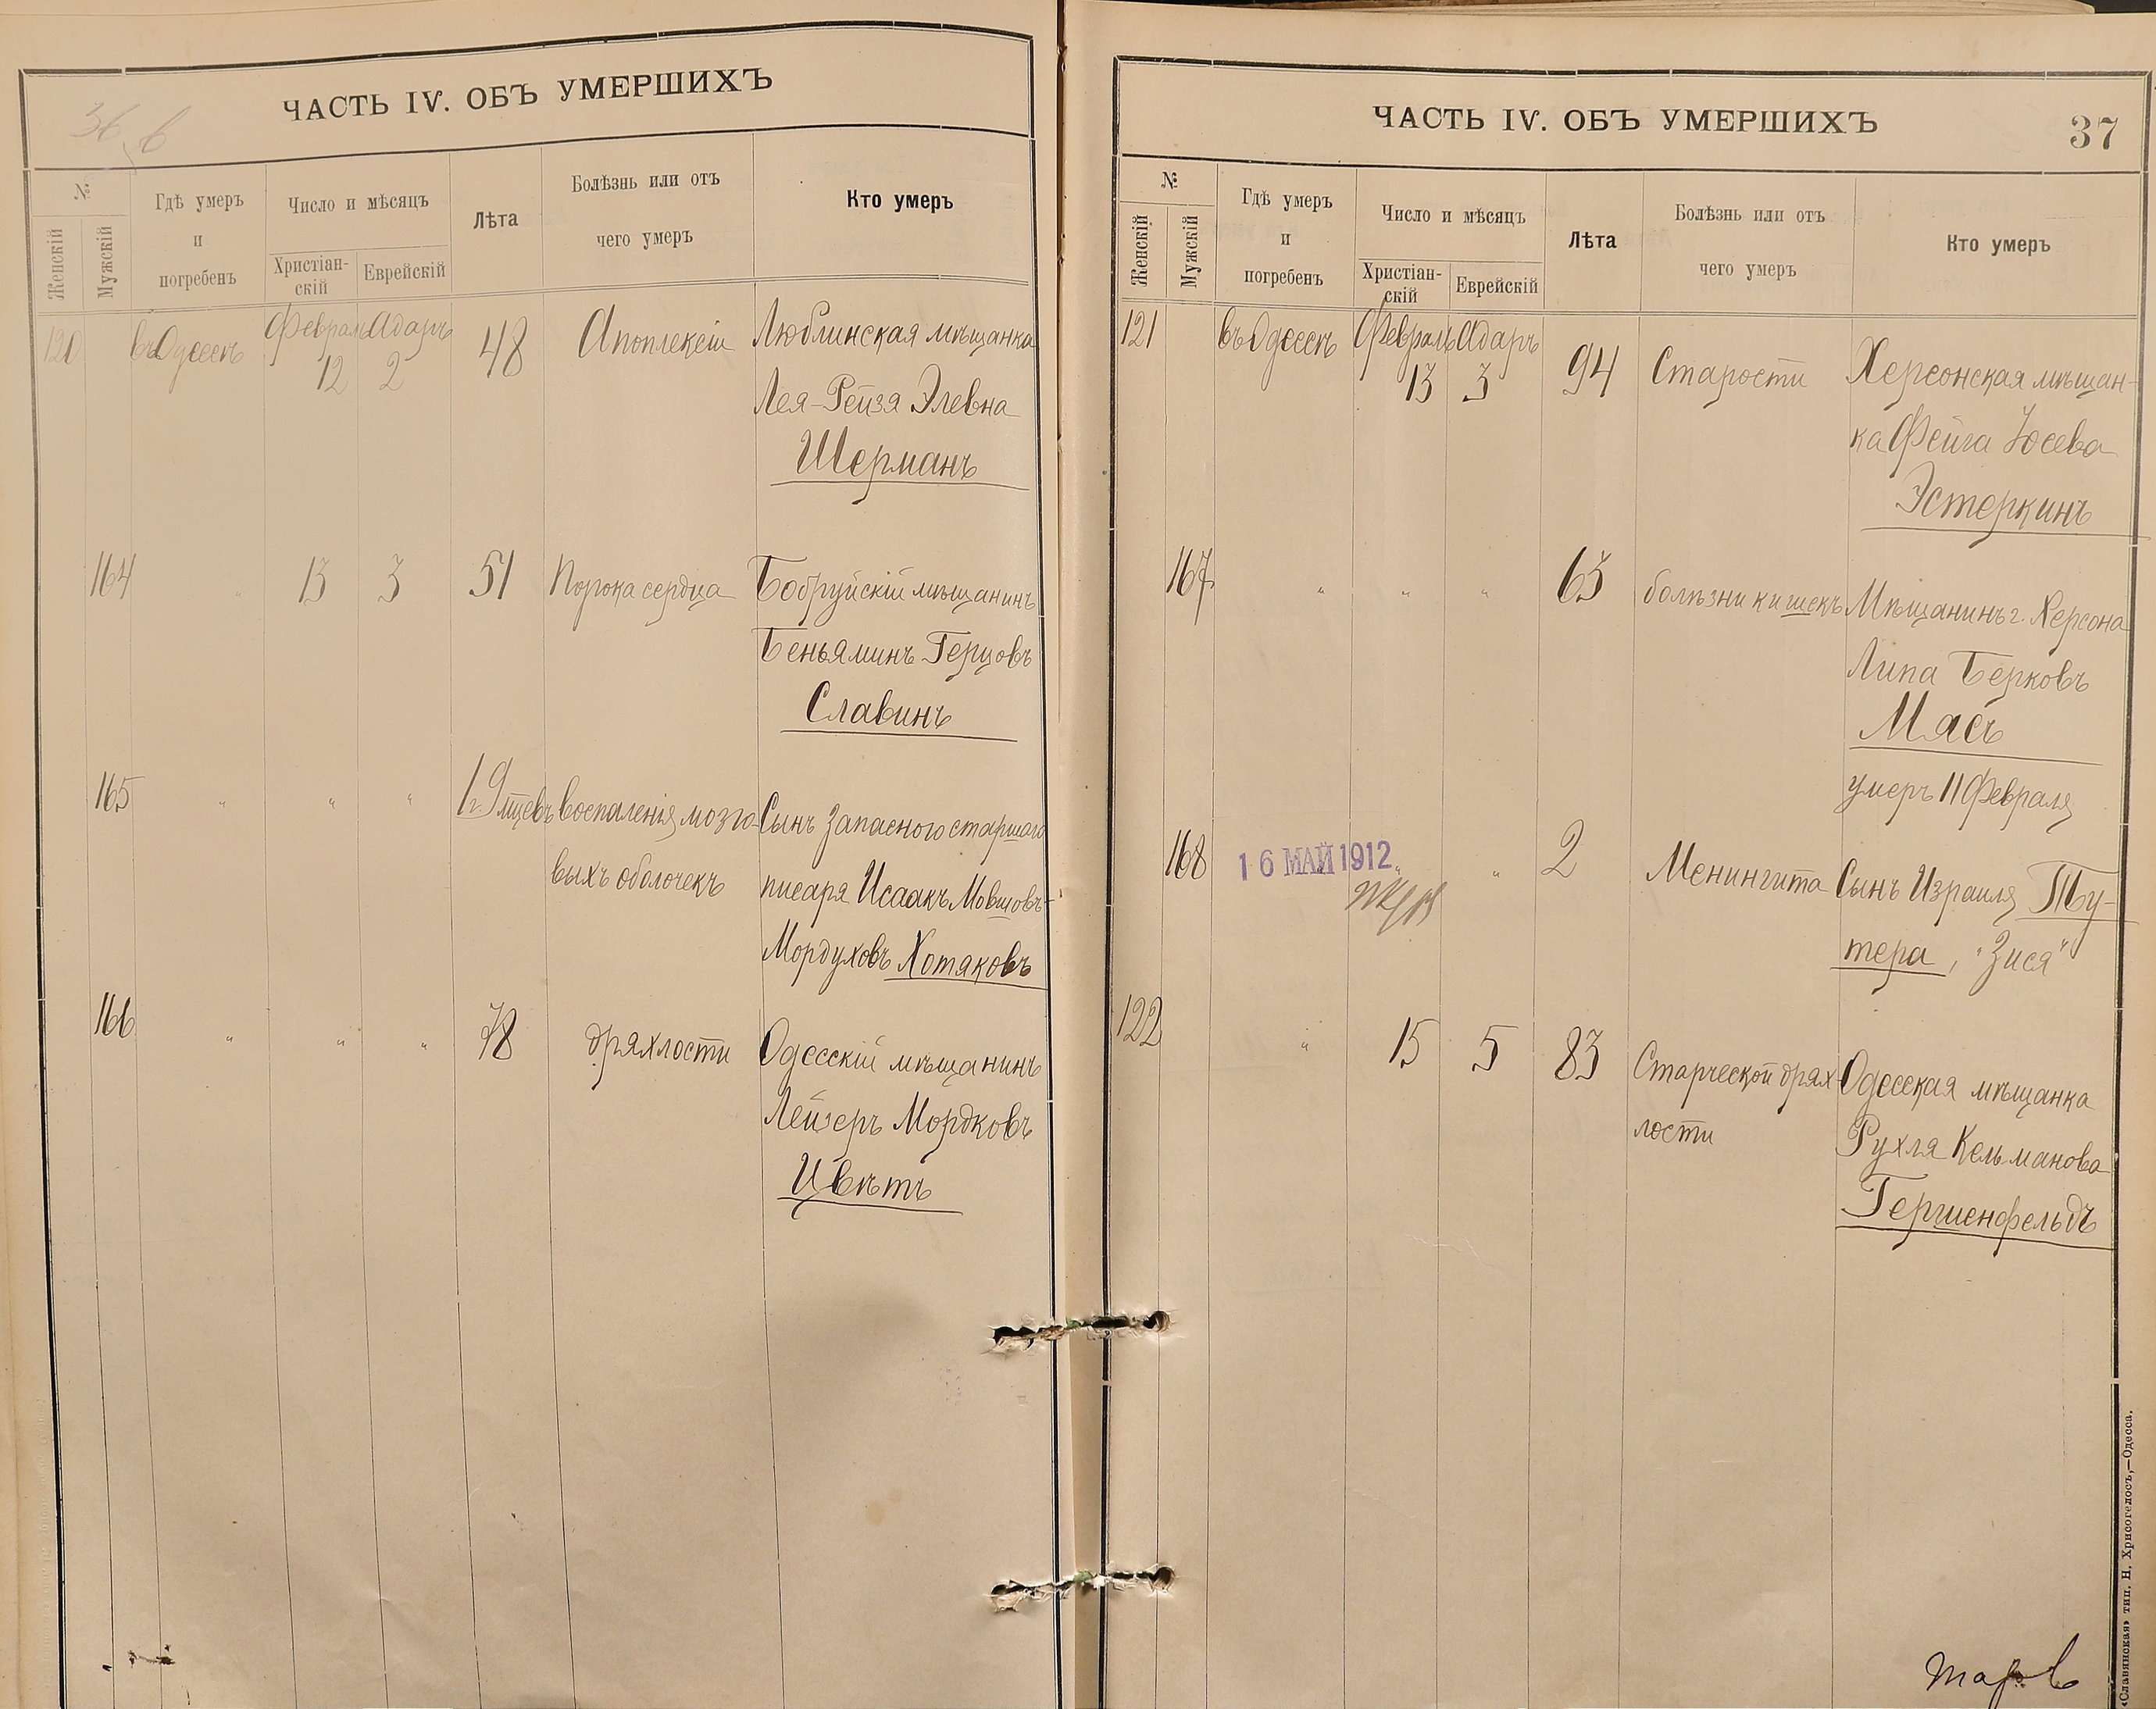 ЧАСТЬ IV. ОБЪ УМЕРШИХЪ
№
Женскій
Мужскій
Гдѣ умеръ
и
погребенъ
Число и мѣсяцъ
Христіан-
скій
Еврейскій
Лѣта
Болѣзнь или отъ
чего умеръ
Кто умеръ
120 въ Одессѣ Февраль Адаръ 48 Апоплексіи Люблинская мѣщанка
12 2
Лея-Рейзя Элевна
Шерманъ
164 " 13 3 51 Порока сердца Бобруйскій мѣщанинъ
Беньяминъ Герцовъ
Славинъ
165 " " " 1 г. 9 мцевъ Воспаленія мозго- Сынъ запасного старшаго
выхъ оболочекъ писаря Исаакъ Мовшовъ-
Мордуховъ Хотяковъ
166 " " " 78 дряхлости Одесскій мѣщанинъ
Лейзеръ Мордковъ
Цвѣтъ
ЧАСТЬ IV. ОБЪ УМЕРШИХЪ
37
№
Женскій
Мужскій
Гдѣ умеръ
и
погребенъ
Число и мѣсяцъ
Христіан-
скій
Еврейскій
Лѣта
Болѣзнь или отъ
чего умеръ
Кто умеръ
121 въ Одессѣ Февраль Адаръ 94 Старости Херсонская мѣщан-
13 3
ка Фейга Юсева
Эстеркинъ
167 " " " 63 болѣзни кишекъ Мѣщанинъ г. Херсона
Липа Берковъ
Масъ
умеръ 11 Февраля
168 16 МАЙ 1912 " " 2 Менингита Сынъ Израиля Ту-
тера, "Зися"
122 " 15 5 83 Старческой дрях- Одесская мѣщанка
лости Рухля Кельманова
Гершенфельдъ
«Славянская» тип. Н. Хрисогелосъ,—Одесса.